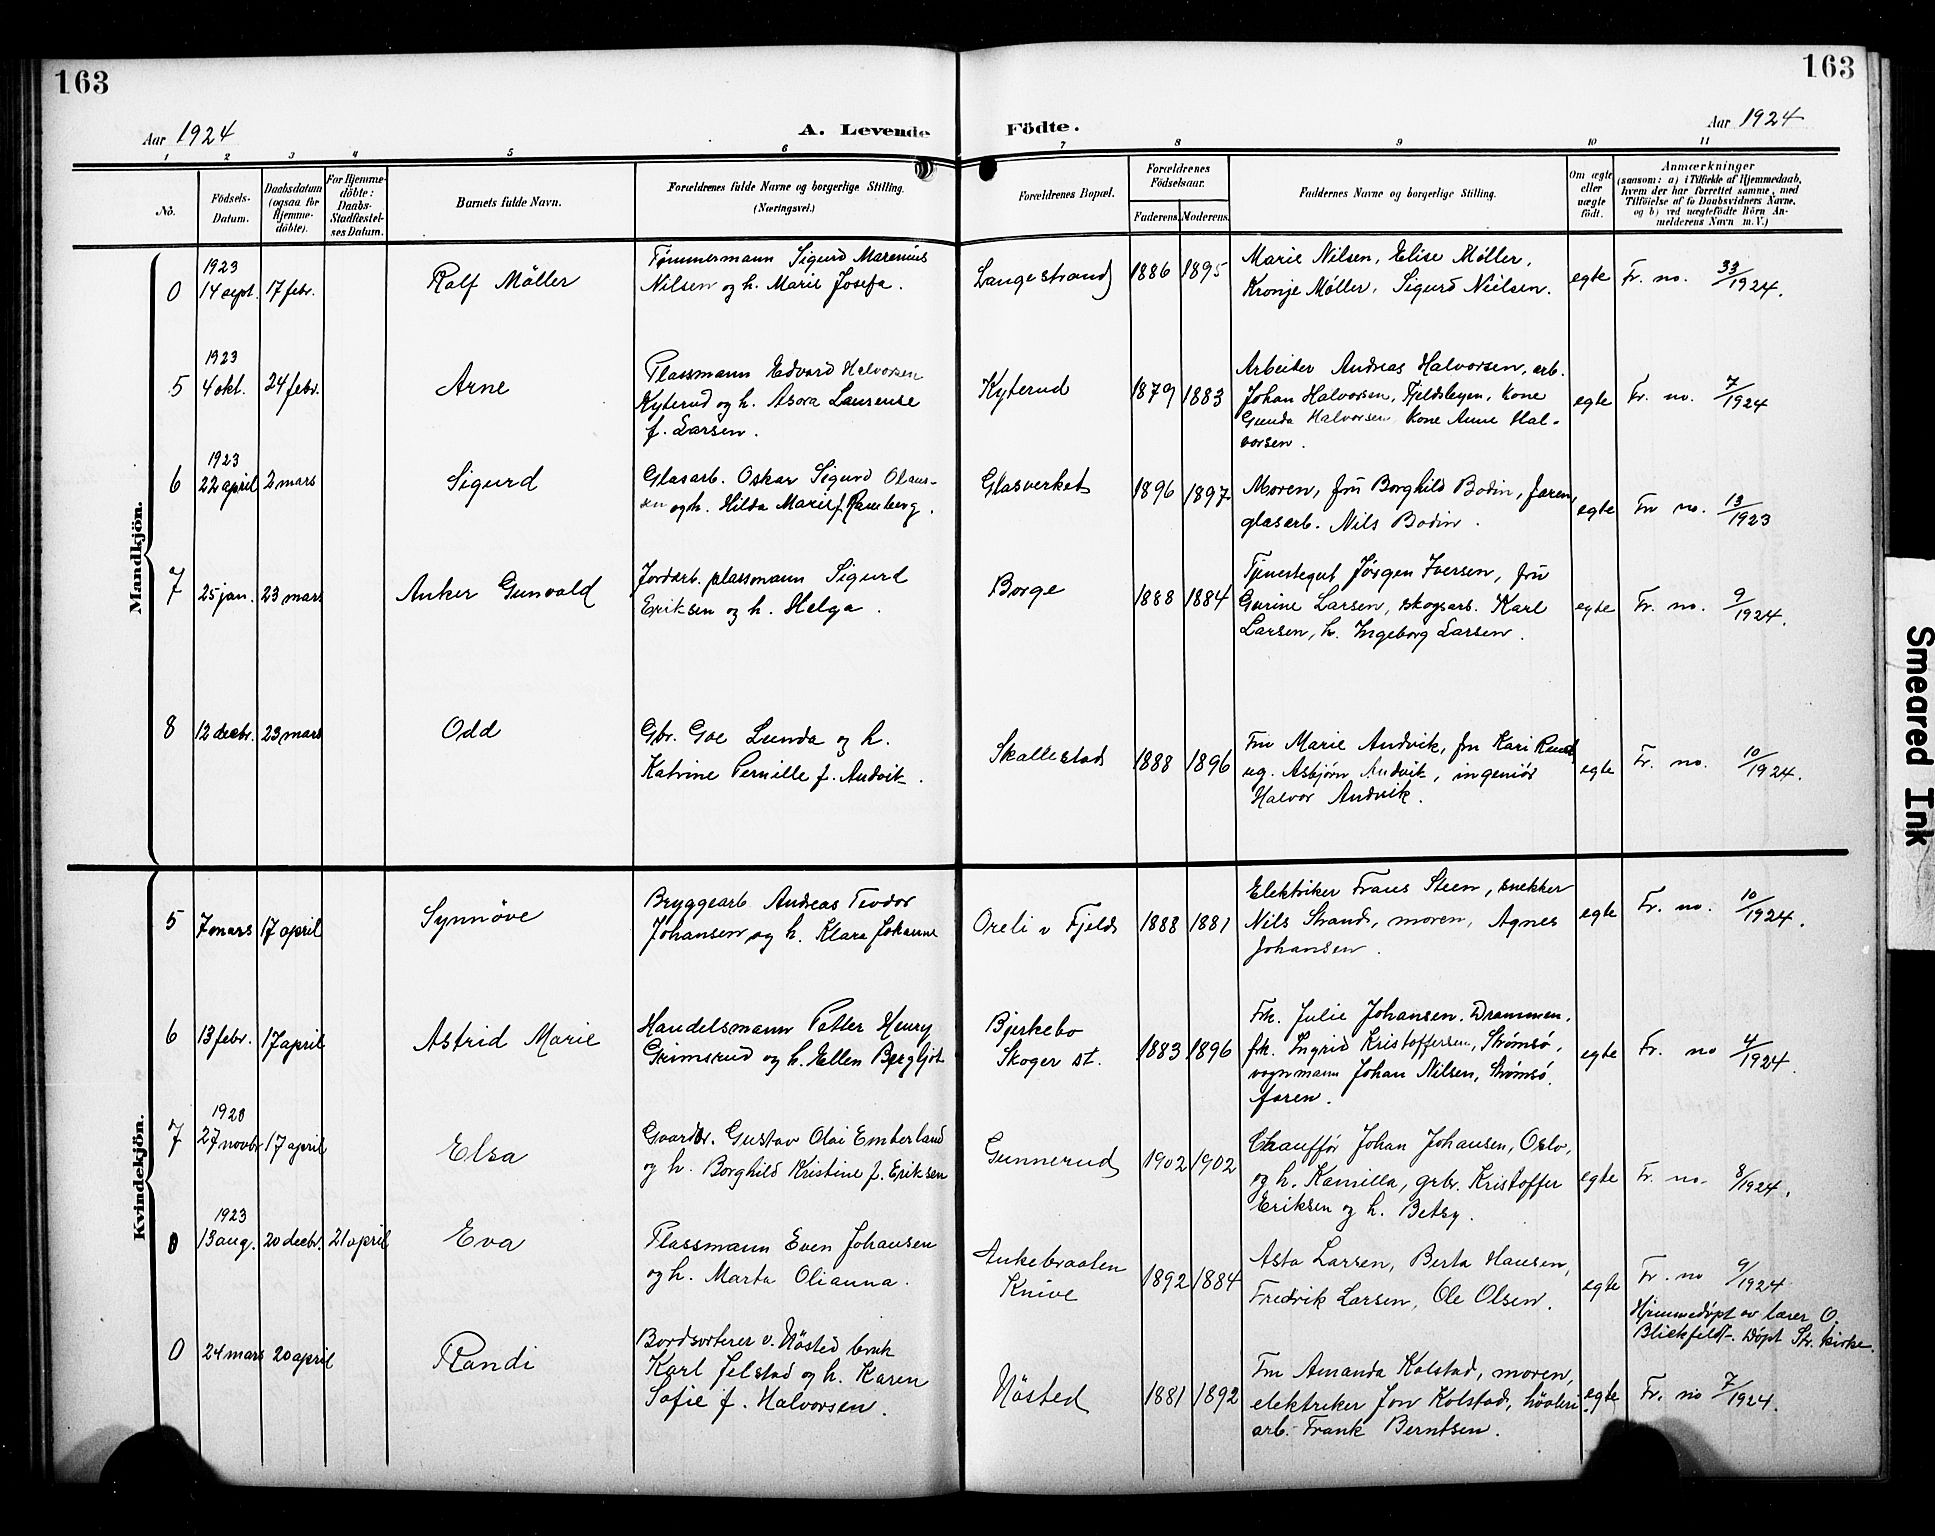 163
163
Aar 1924
A. Levende Födte.
Aar 1924
1 2 3 4 5 6 7 8 9 10 11
No.
Födsels-
Datum.
Daabsdatum
(ogsaa for
Hjemme-
döbte).
For Hjemme-
döbte:
Daabs-
Stadfæstel-
ses Datum.
Barnets fulde Navn.
Forældrenes fulde Navne og borgerlige Stilling.
(Næringsvei.)
Forældrenes Bopæl.
Forældrenes
Födselsaar.
Faderens. Moderens.
Faddernes Navne og borgerlige Stilling.
Om ægte
eller
uægte
født.
Anmærkninger
(saasom: a) i Tilfælde af Hjemmedaab,
hvem der har forrettet samme, med
Tilföielse af to Daabsvidners Navne,
og b) ved uægtefödte Börn An-
melderens Navn m. V.)
Mandkjön.
0
1923
14 sept.
17 febr.
Ralf Möller
Tømmermann Sigurd Marenius
Nilsen og h. Marie Josefa.
Langestrand
1886
1895
Marie Nilsen, Elise Møller,
Kronje Møller, Sigurd Nielsen.
egte
Fr. no. 33/1924.
5
1923
4 okt.
24 febr.
Arne
Plassmann Edvard Halvorsen
Kyterud og h. Asora Laurense
f. Larsen.
Kyterud
1879
1883
Arbeider Andreas Halvorsen, arb.
Johan Halvorsen, Fjeldsbyen, Kone
Gunda Halvorsen Kone Anne Hal-
vorsen.
egte
Fr. no. 7/1924
6
1923
22 april
2 mars
Sigurd
Glasarb. Oskar Sigurd Olaus-
sen og h. Hilda Marie f. Ramberg.
Glasverket
1896
1897
Moren, fru Borghild Bodin, faren,
glasarb. Nils Bodin.
egte
Fr no. 13/1923
7
25 jan.
23 mars
Anker Gunvald
Jordarb. plassmann Sigurd
Eriksen og h. Helga.
Borge
1888
1884
Tjenestegut Jørgen Iversen, fru
Gurine Larsen, skogsarb. Karl
Larsen, h. Ingeborg Larsen.
egte
Fr. no. 9/1924.
8
12 decbr.
23 mars
Odd
Gbr. Goe Lunda og h.
Katrine Pernille f. Andvik.
Skallestad
1888
1896
Fru Marie Andvik, fru Kari
ug. Asbjørn Andvik, ingeniør
Halvor Andvik.
egte
Fr. no. 10/1924.
Kvindekjön.
5
7 mars
17 april
Synnöve
Bryggearb Andreas Teodor
Johansen og h. Klara Johanne
Oreli v Fjelds
1888
1881
Elektriker Frans Steen, snekker
Nils Strand, moren, Agnes
Johansen.
egte
Fr. no. 10/1924.
6
13 febr.
17 april
Astrid Marie
Handelsmann Petter Henry
Grimsrud og h. Ellen Bergljot
Bjerkebo
Skoger st.
1883
1896
Frk. Julie Johansen. Drammen.
frk. Ingrid Kristoffersen, Strømsø,
vognmann Johan Nilsen, Strømsø,
faren.
egte
Fr. no 4/1924.
7
1923
27 novbr
17 april
Elsa
Gaardbr. Gustav Olai Emberland
og h. Borghild Kristine f. Eriksen
Gunnerud
1902
1902
Chauffør Johan Johansen, Oslo,
og h. Kamilla, grbr. Kristoffer
Eriksen og h. Betsy.
egte
Fr. no. 8/1924.
0
1923
13 aug.
20 decbr.
21 april
Eva
Plassmann Even Johansen
og h. Marta Olianna.
Ankebraaten
Knive
1892
1884
Asta Larsen, Berta Hansen,
Fredrik Larsen, Ole Olsen.
egte
Fr. no 9/1924
Hjemmedøpt av lærer O.
Blickfeldt-. Døpt Str. kirke.
0
24 mars
20 april
Randi
Bordsorterer v. Nösted bruk
Karl Jelstad og h. Karen
Sofie f. Halvorsen.
Nösted
1881
1892
Fru Amanda Kolstad, moren,
elektriker Jon Kolstad, høvleri
arb. Frank Berntsen.
egte
Fr. no 7/1924.
Smeared Ink